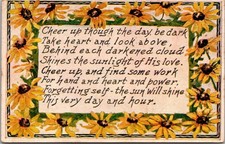 Cheer up though the day be dark
Take heart and look above,
Behind each darkened cloud
Shines the sunlight of His love.
Cheer up, and find some work
For hand and heart and power,
Forgetting self - the sun will shine
This very day and hour.